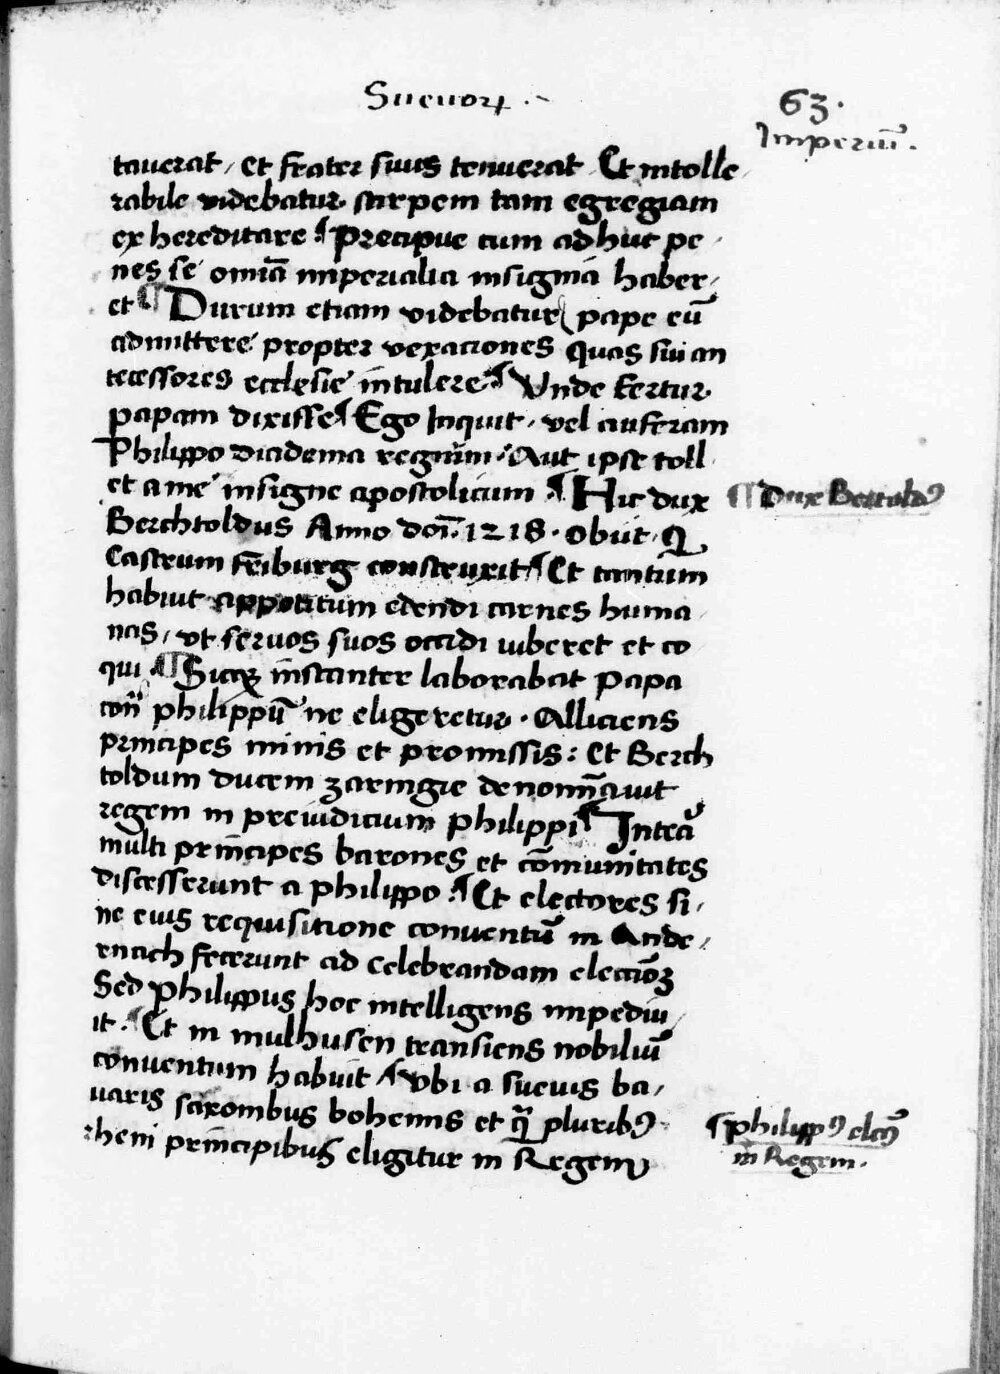 Sueuoꝝ .~
63.
Imperiū .
tauerat / et frater suus tenuerat Et intolle
rabile videbatur stirpem tam egregiam
exhereditare ¶ Precipue cum adhuc pe
nes se omīa imperialia insignia haber
et ¶ Durum etiam videbatur pape eū
admittere propter vexaciones quas sui an
tecessores ecclesie intulere ¶ Vnde fertur
papam dixisse ¶ Ego Inquit / vel auferam
Philippo diadema regnūm Aut ipse toll
et a me insigne apostolicum ¶ Hic dux
¶ Dux Bertoldꝰ
Berchtoldus Anno doī. 1218 . obiit . Q
Castrum friburg construxit ¶ Et tantum
habuit appotitum edendi carnes huma
nas / vt seruos suos occidi iuberet et co
qui ¶ Sicqꝫ instanter laborabat Papa
con̄ philippū ne eligeretur . Alliciens
principes minis et promissis : Et Berch
toldum ducem zaringie denomīauit
regem in preiudicium philippi ¶ Interā
multi principes barones et cōmunitates
discesserunt a philippo ¶ Et electores si
ne eius requisitione conuentū in Ande
rnach fecerunt ad celebrandam eleccioꝫ
Sed philippus hoc intelligens impediu
it . ¶ Et in mulhusen transiens nobiliū
conuentum habuit ¶ vbi a sueuis ba
uaris saxonibus bohemis et qꝫ pluribꝰ
¶ philippꝰ elcꝰ
in Regem .
rheni principibus eligitur in Regem